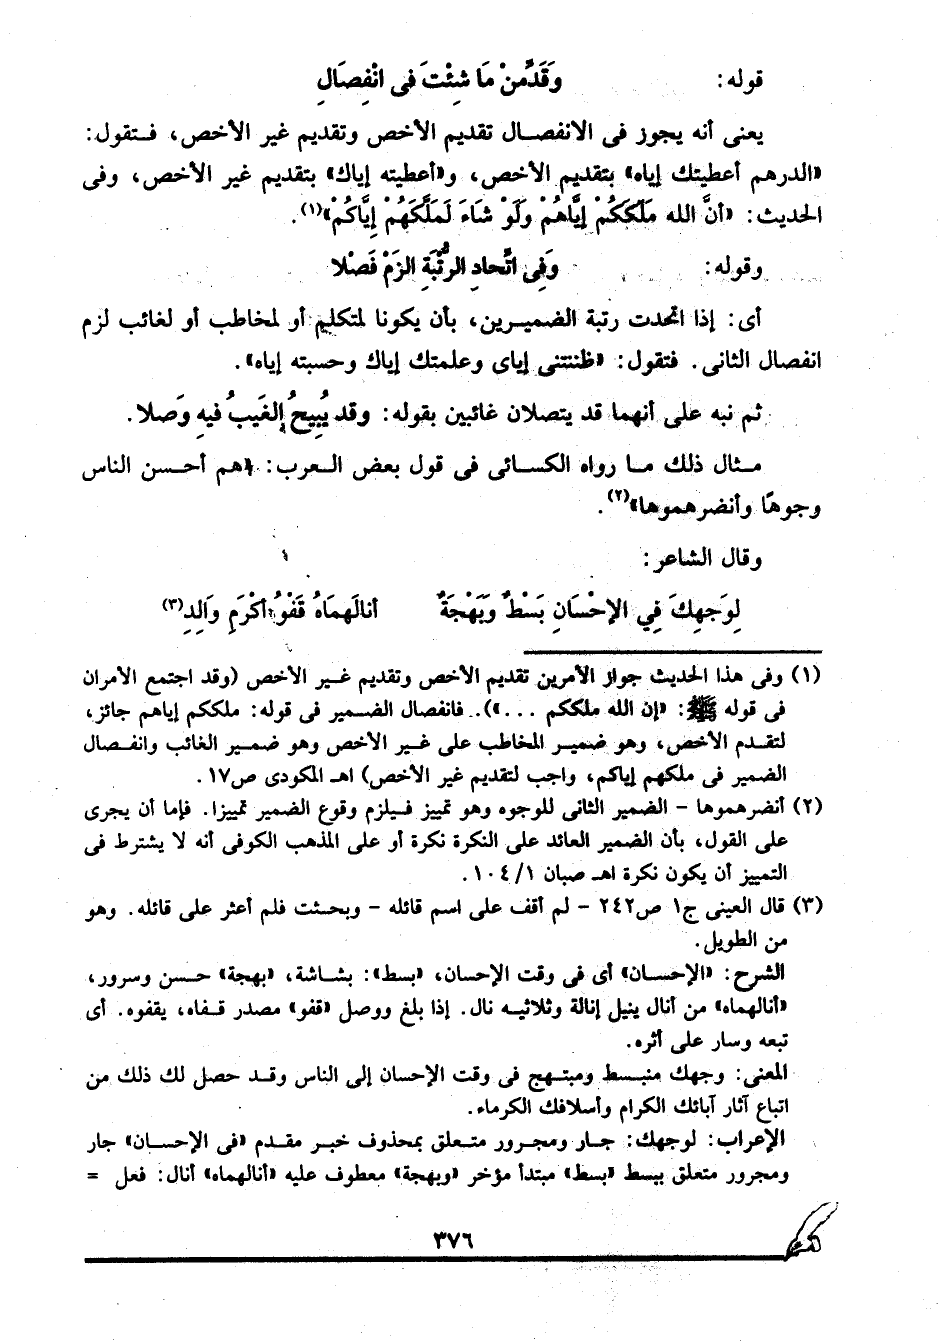 قوله: وَقَدِّمَنْ مَا شِئْتَ فى انْفِصَالِ
يعنى أنه يجوز فى الانفصال تقديم الأخص وتقديم غير الأخص، فتقول:
«الدرهم أعطيتك إياه» بتقديم الأخص، و«أعطيته إياك» بتقديم غير الأخص، وفى
الحديث: «أنَّ الله مَلَّكَكُمْ إيَّاهُمْ وَلَوْ شَاءَ لَمَلَّكَهُمْ إيَّاكُمْ»(١).
وقوله: وَفِى اتِّحادِ الرُّتْبَةِ الزَمْ فَصْلا
أى: إذا اتحدت رتبة الضميرين، بأن يكونا لمتكلم أو لمخاطب أو لغائب لزم
انفصال الثانى. فتقول: «ظننتنى إياى وعلمتك إياك وحسبته إياه».
ثم نبه على أنهما قد يتصلان غائبين بقوله: وقد يُبِيحُ الغَيبُ فيهِ وَصلا.
مثال ذلك ما رواه الكسائى فى قول بعض العرب: «هم أحسن الناس
وجوهًا وأنضرهموها»(٢).
وقال الشاعر:
لِوَجهِكَ فِي الإحْسَانِ بَسْطٌ وَبَهْجَةٌ أنالَهماهُ قَفْوُ أكْرَمِ وَالِدِ(٣)
(١) وفى هذا الحديث جواز الأمرين تقديم الأخص وتقديم غير الأخص (وقد اجتمع الأمران
فى قوله ﷺ: «إن الله ملككم ...»).. فانفصال الضمير فى قوله: ملككم إياهم جائز،
لتقدم الأخص، وهو ضمير المخاطب على غير الأخص وهو ضمير الغائب وانفصال
الضمير فى ملكهم إياكم، واجب لتقديم غير الأخص) اهـ المكودى ص١٧.
(٢) أنضرهموها - الضمير الثانى للوجوه وهو تمييز فيلزم وقوع الضمير تمييزا. فإما أن يجرى
على القول، بأن الضمير العائد على النكرة نكرة أو على المذهب الكوفى أنه لا يشترط فى
التمييز أن يكون نكرة اهـ صبان ١٠٤/١.
(٣) قال العينى ج١ ص٢٤٢ - لم أقف على اسم قائله - وبحثت فلم أعثر على قائله. وهو
من الطويل.
الشرح: «الإحسان» أى فى وقت الإحسان، «بسط»: بشاشة، «بهجة» حسن وسرور،
«أنالهماه» من أنال ينيل إنالة وثلاثيه نال. إذا بلغ ووصل «قفو» مصدر قفاه، يقفوه. أى
تبعه وسار على أثره.
المعنى: وجهك منبسط ومبتهج فى وقت الإحسان إلى الناس وقد حصل لك ذلك من
اتباع آثار آبائك الكرام وأسلافك الكرماء.
الإعراب: لوجهك: جار ومجرور متعلق بمحذوف خبر مقدم «فى الإحسان» جار
ومجرور متعلق ببسط «بسط» مبتدأ مؤخر «وبهجة» معطوف عليه «أنالهماه» أنال: فعل =
٣٧٦